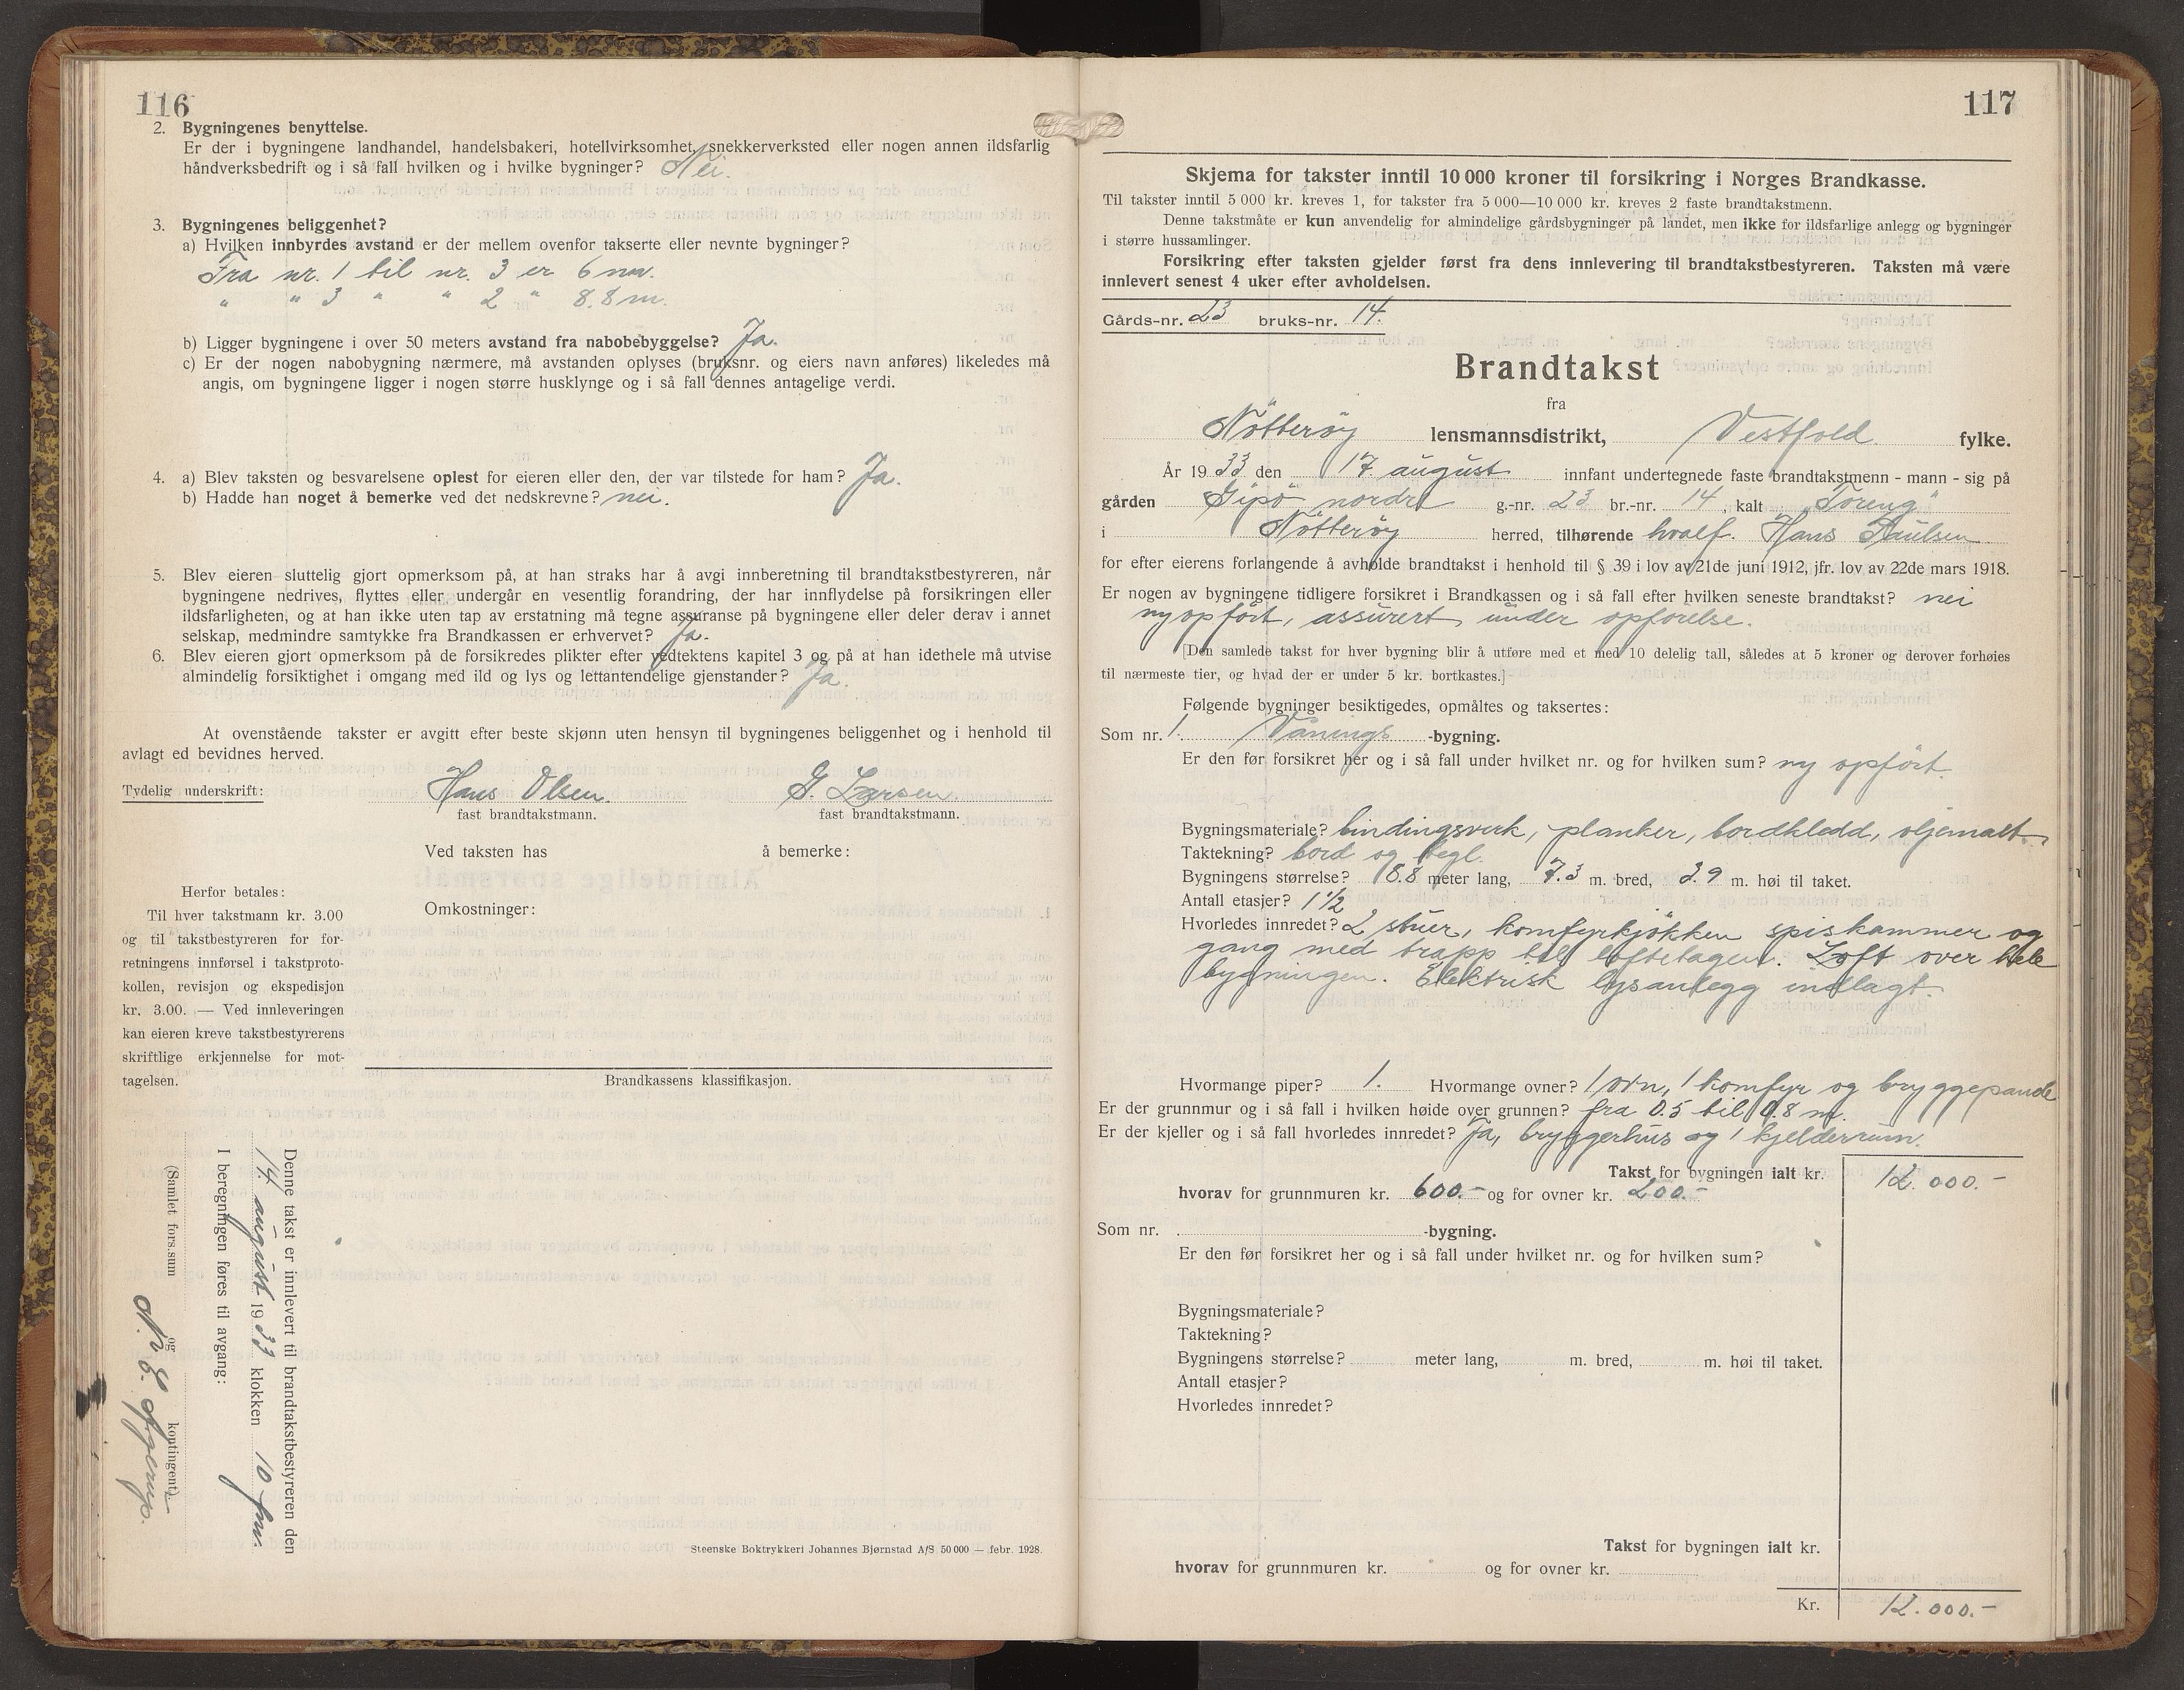 116
2. Bygningenes benyttelse.
Er der i bygningene landhandel, handelsbakeri, hotellvirksomhet, snekkerverksted eller nogen annen ildsfarlig
håndverksbedrift og i så fall hvilken og i hvilke bygninger? Nei.
3. Bygningenes beliggenhet?
a) Hvilken innbyrdes avstand er der mellem ovenfor takserte eller nevnte bygninger?
Fra nr. 1 til nr. 3 er 6 m.
" " 3 " " 2 " 8.8 m.
b) Ligger bygningene i over 50 meters avstand fra nabobebyggelse? Ja.
c) Er der nogen nabobygning nærmere, må avstanden oplyses (bruksnr. og eiers navn anføres) likeledes må
angis, om bygningene ligger i nogen større husklynge og i så fall dennes antagelige verdi.
4. a) Blev taksten og besvarelsene oplest for eieren eller den, der var tilstede for ham? Ja.
b) Hadde han noget å bemerke ved det nedskrevne? nei.
5. Blev eieren sluttelig gjort opmerksom på, at han straks har å avgi innberetning til brandtakstbestyreren, når
bygningene nedrives, flyttes eller undergår en vesentlig forandring, der har innflydelse på forsikringen eller
ildsfarligheten, og at han ikke uten tap av erstatning må tegne assuranse på bygningene eller deler derav i annet
selskap, medmindre samtykke fra Brandkassen er erhvervet? Ja.
6. Blev eieren gjort opmerksom på de forsikredes plikter efter vedtektens kapitel 3 og på at han idethele må utvise
almindelig forsiktighet i omgang med ild og lys og lettantendelige gjenstander? Ja.
At ovenstående takster er avgitt efter beste skjønn uten hensyn til bygningenes beliggenhet og i henhold til
avlagt ed bevidnes herved.
Tydelig underskrift: Hans Olsen. G. Larsen.
fast brandtakstmann. fast brandtakstmann.
Ved taksten has å bemerke:
Omkostninger:
Herfor betales:
Til hver takstmann kr. 3.00
og til takstbestyreren for for-
retningens innførsel i takstproto-
kollen, revisjon og ekspedisjon
kr. 3.00. — Ved innleveringen
kan eieren kreve takstbestyrerens
skriftlige erkjennelse for mot-
tagelsen.
Brandkassens klassifikasjon.
Denne takst er innlevert til brandtakstbestyreren den
14. august 1933 klokken 10 fm.
I beregningen føres til avgang:
(Samlet fors.sum og kontingent).
N. E. Agerup.
Steenske Boktrykkeri Johannes Bjørnstad A/S 50 000 — febr. 1928.
117
Skjema for takster inntil 10 000 kroner til forsikring i Norges Brandkasse.
Til takster inntil 5 000 kr. kreves 1, for takster fra 5 000—10 000 kr. kreves 2 faste brandtakstmenn.
Denne takstmåte er kun anvendelig for almindelige gårdsbygninger på landet, men ikke for ildsfarlige anlegg og bygninger
i større hussamlinger.
Forsikring efter taksten gjelder først fra dens innlevering til brandtakstbestyreren. Taksten må være
innlevert senest 4 uker efter avholdelsen.
Gårds-nr. 23 bruks-nr. 14.
Brandtakst
fra
Nötteröy lensmannsdistrikt, Vestfold fylke.
År 1933 den 17. august innfant undertegnede faste brandtakstmenn - mann - sig på
gården Gipö nordre g.-nr. 23 br.-nr. 14, kalt "Toreng"
i Nötteröy herred, tilhørende hvalf. Hans Paulsen
for efter eierens forlangende å avholde brandtakst i henhold til § 39 i lov av 21de juni 1912, jfr. lov av 22de mars 1918.
Er nogen av bygningene tidligere forsikret i Brandkassen og i så fall efter hvilken seneste brandtakst? nei
ny opfört, assurert under opförelse.
[Den samlede takst for hver bygning blir å utføre med et med 10 delelig tall, således at 5 kroner og derover forhøies
til nærmeste tier, og hvad der er under 5 kr. bortkastes.]
Følgende bygninger besiktigedes, opmåltes og taksertes:
Som nr. 1. Vånings -bygning.
Er den før forsikret her og i så fall under hvilket nr. og for hvilken sum? ny opfört.
Bygningsmateriale? bindingsverk, planker, bordkledd, oljemalt.
Taktekning? bord og tegl.
Bygningens størrelse? 8.8 meter lang, 7.3 m. bred, 3.9 m. høi til taket.
Antall etasjer? 1 1/2
Hvorledes innredet? 2 stuer, komfyrkjökken spiskammer og
gang med trapp til loftetagen. Loft over hele
bygningen. Elektrisk lysanlegg indlagt.
Hvormange piper? 1. Hvormange ovner? 1 ovn, 1 komfyr og bryggepande
Er der grunnmur og i så fall i hvilken høide over grunnen? fra 0.5 til 0.8 m.
Er der kjeller og i så fall hvorledes innredet? Ja, bryggerhus og 1 kjelderrum.
Takst for bygningen ialt kr. 12.000.-
hvorav for grunnmuren kr. 600.- og for ovner kr. 200.-
Som nr. -bygning.
Er den før forsikret her og i så fall under hvilket nr. og for hvilken sum?
Bygningsmateriale?
Taktekning?
Bygningens størrelse? meter lang, m. bred, m. høi til taket.
Antall etasjer?
Hvorledes innredet?
Takst for bygningen ialt kr.
hvorav for grunnmuren kr. og for ovner kr.
Kr. 12.000.-